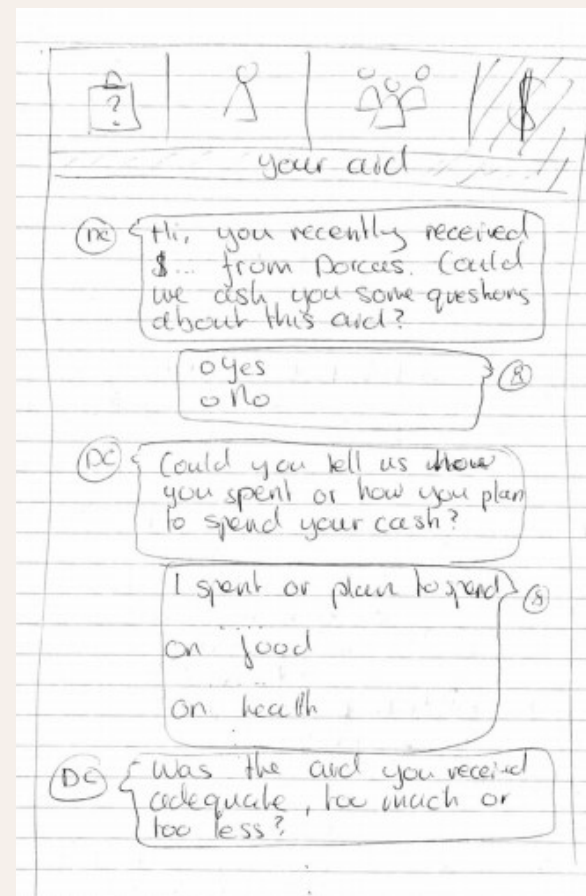 ?
$
your aid
DC
Hi, you recently received
$... from Dorcas. Could
we ask you some questions
about this aid?
o Yes
o No
R
DC
Could you tell us how
you spent or how you plan
to spend your cash?
I spent or plan to spend
....
on food
....
on health
DC
Was the aid you received
adequate, too much or
too less?